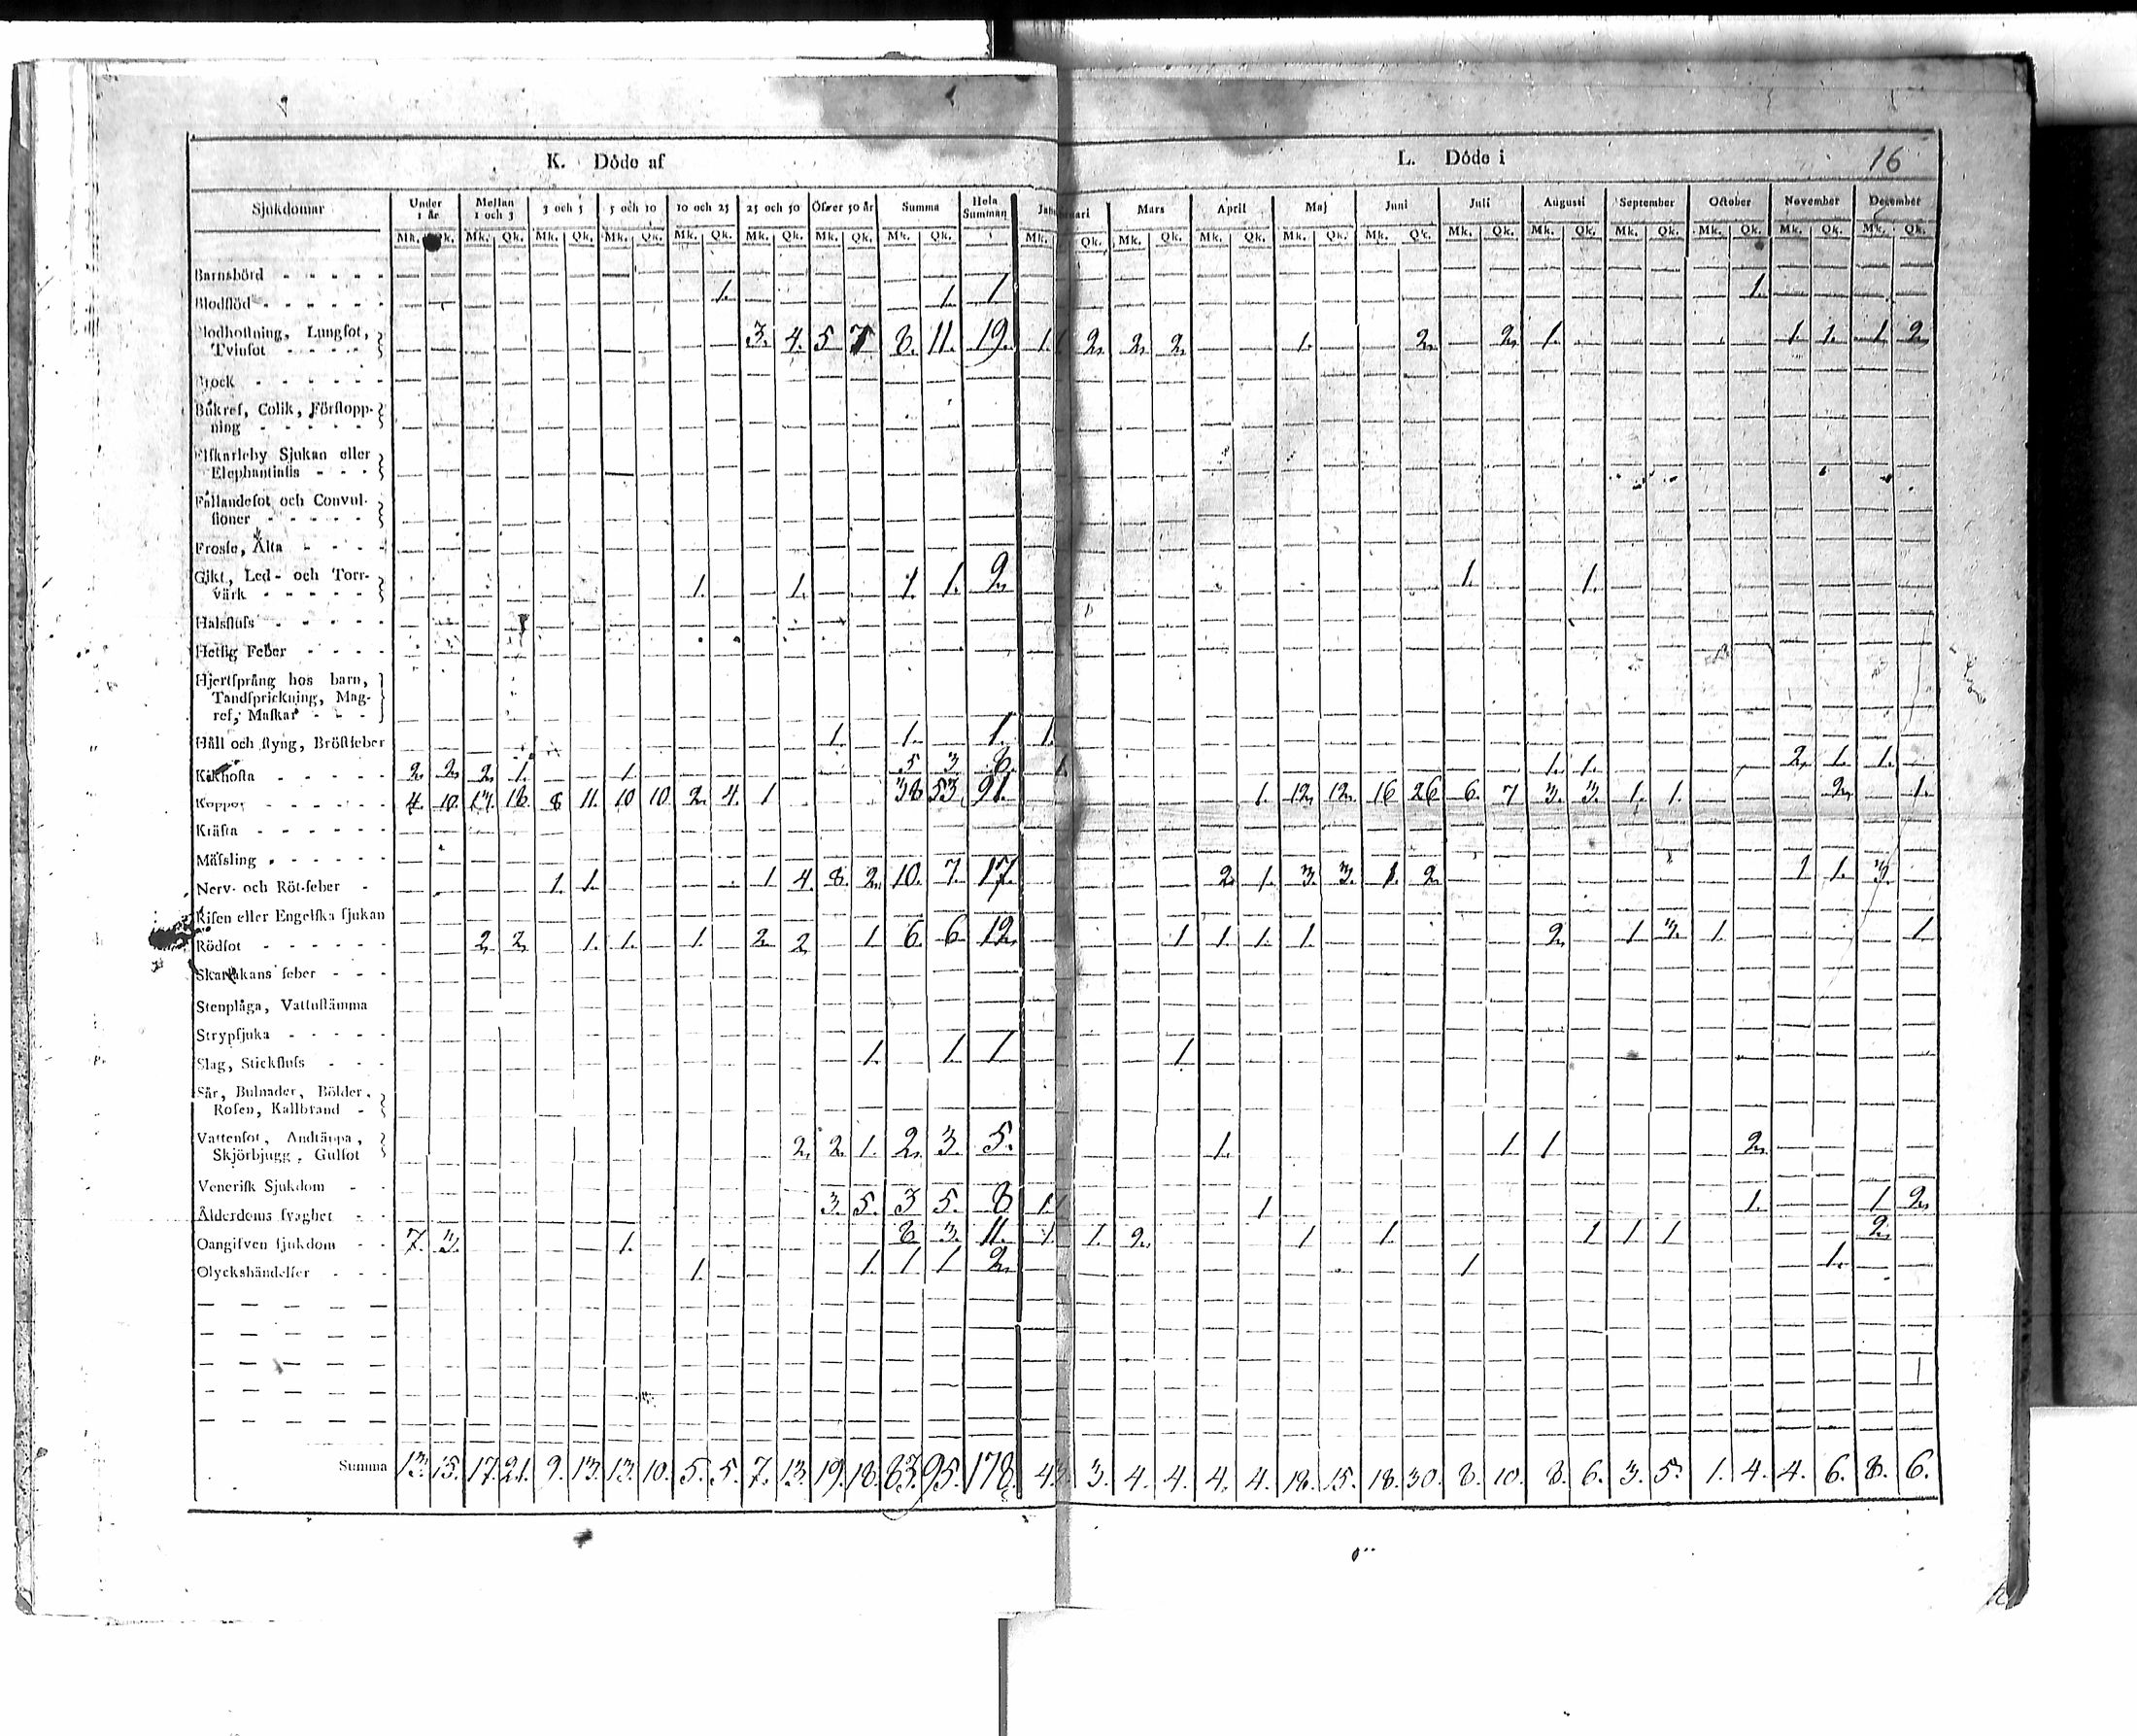 K. Döde af L. Döde i 16
Sjukdomar Under 1 år Mellan 1 och 3 3 och 5 5 och 10 10 och 25 25 och 50 Öfver 50 år Summa Hela Summan Januari Mars April Maj Juni Juli Augusti September October November December
Mk. Qk. Mk. Qk. Mk. Qk. Mk. Qk. Mk. Qk. Mk. Qk. Mk. Qk. Mk. Qk. Mk. Qk. Mk. Qk. Mk. Qk. Mk. Qk. Mk. Qk. Mk. Qk. Mk. Qk. Mk. Qk. Mk. Qk. Mk. Qk. Mk. Qk.
Barnsbörd
Blodflöd 1. 1. 1 1.
Blodhostning, Lungsot,
Tvinsot 3. 4. 5 7 8. 11. 19. 1. 2. 2. 2. 1. 2. 2. 1. 1. 1. 1. 2.
Brock
Bukref, Colik, Förstopp-
ning
Elfkarleby Sjukan eller
Elephantiasis
Fallandesot och Convul-
sioner
Frossa, Älta
Gikt, Led- och Torr-
värk 1. 1. 1. 1. 2. 1. 1.
Halsfluss
Hetsig Feber
Hjertsprång hos barn,
Tandsprickning, Mag-
ref, Maskar
Håll och styng, Bröstfeber 1. 1. 1. 1.
Kikhosta 2. 2. 2. 1. 1. 5 3. 8. 1. 1. 2. 1. 1.
Koppor 4. 10. 13. 18. 8 11. 10 10. 2. 4. 1 38 53. 91. 1. 12. 12. 16 26 6. 7 3. 3. 1. 1. 2. 1.
Kräfta
Mässling
Nerv- och Röt-feber 1. 1. 1 4. 8. 2. 10. 7. 17. 2. 1. 3. 3. 1. 2. 1 1. 3.
Risen eller Engelska sjukan
Rödsot 2. 2. 1. 1. 1. 2. 2 1. 6. 6 12. 1 1. 1. 1. 2. 1 3. 1. 1.
Skarlakans feber
Stenplåga, Vattustämma
Strypsjuka
Slag, Stickfluss 1. 1. 1 1
Sår, Bulnader, Bölder,
Rosen, Kallbrand
Vattensot, Andtäppa,
Skjörbjugg, Gulsot 2. 2. 1. 2. 3. 5. 1. 1. 1 2.
Venerisk Sjukdom
Ålderdoms svaghet 3. 5. 3 5. 8 1. 1 1. 1 2.
Oangifven sjukdom 7. 3. 1. 8 3. 11. 1 1. 2. 1 1. 1 1 1 2.
Olyckshändelser 1. 1. 1 1 2. 1 1.
Summa 13. 15. 17. 21. 9. 13. 13. 10. 5. 5. 7. 13. 19. 18. 83. 95. 178. 4. 3. 4. 4. 4. 4. 18. 15. 18. 30. 8. 10. 8. 6. 3. 5. 1. 4. 4. 6. 8. 6.